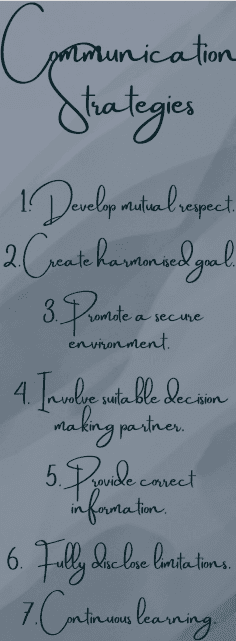 Communication
Strategies
1. Develop mutual respect.
2. Create harmonised goal.
3. Promote a secure
environment.
4. Involve suitable decision
making partner.
5. Provide correct
information.
6. Fully disclose limitations.
7. Continuous learning.